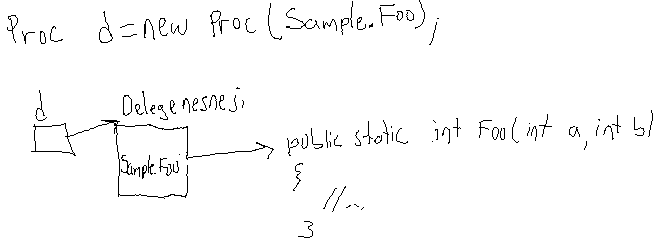 Proc d=new Proc(Sample.Foo);
d
Delege nesnesi
Sample.Foo
public static int Foo(int a, int b)
{
//...
}